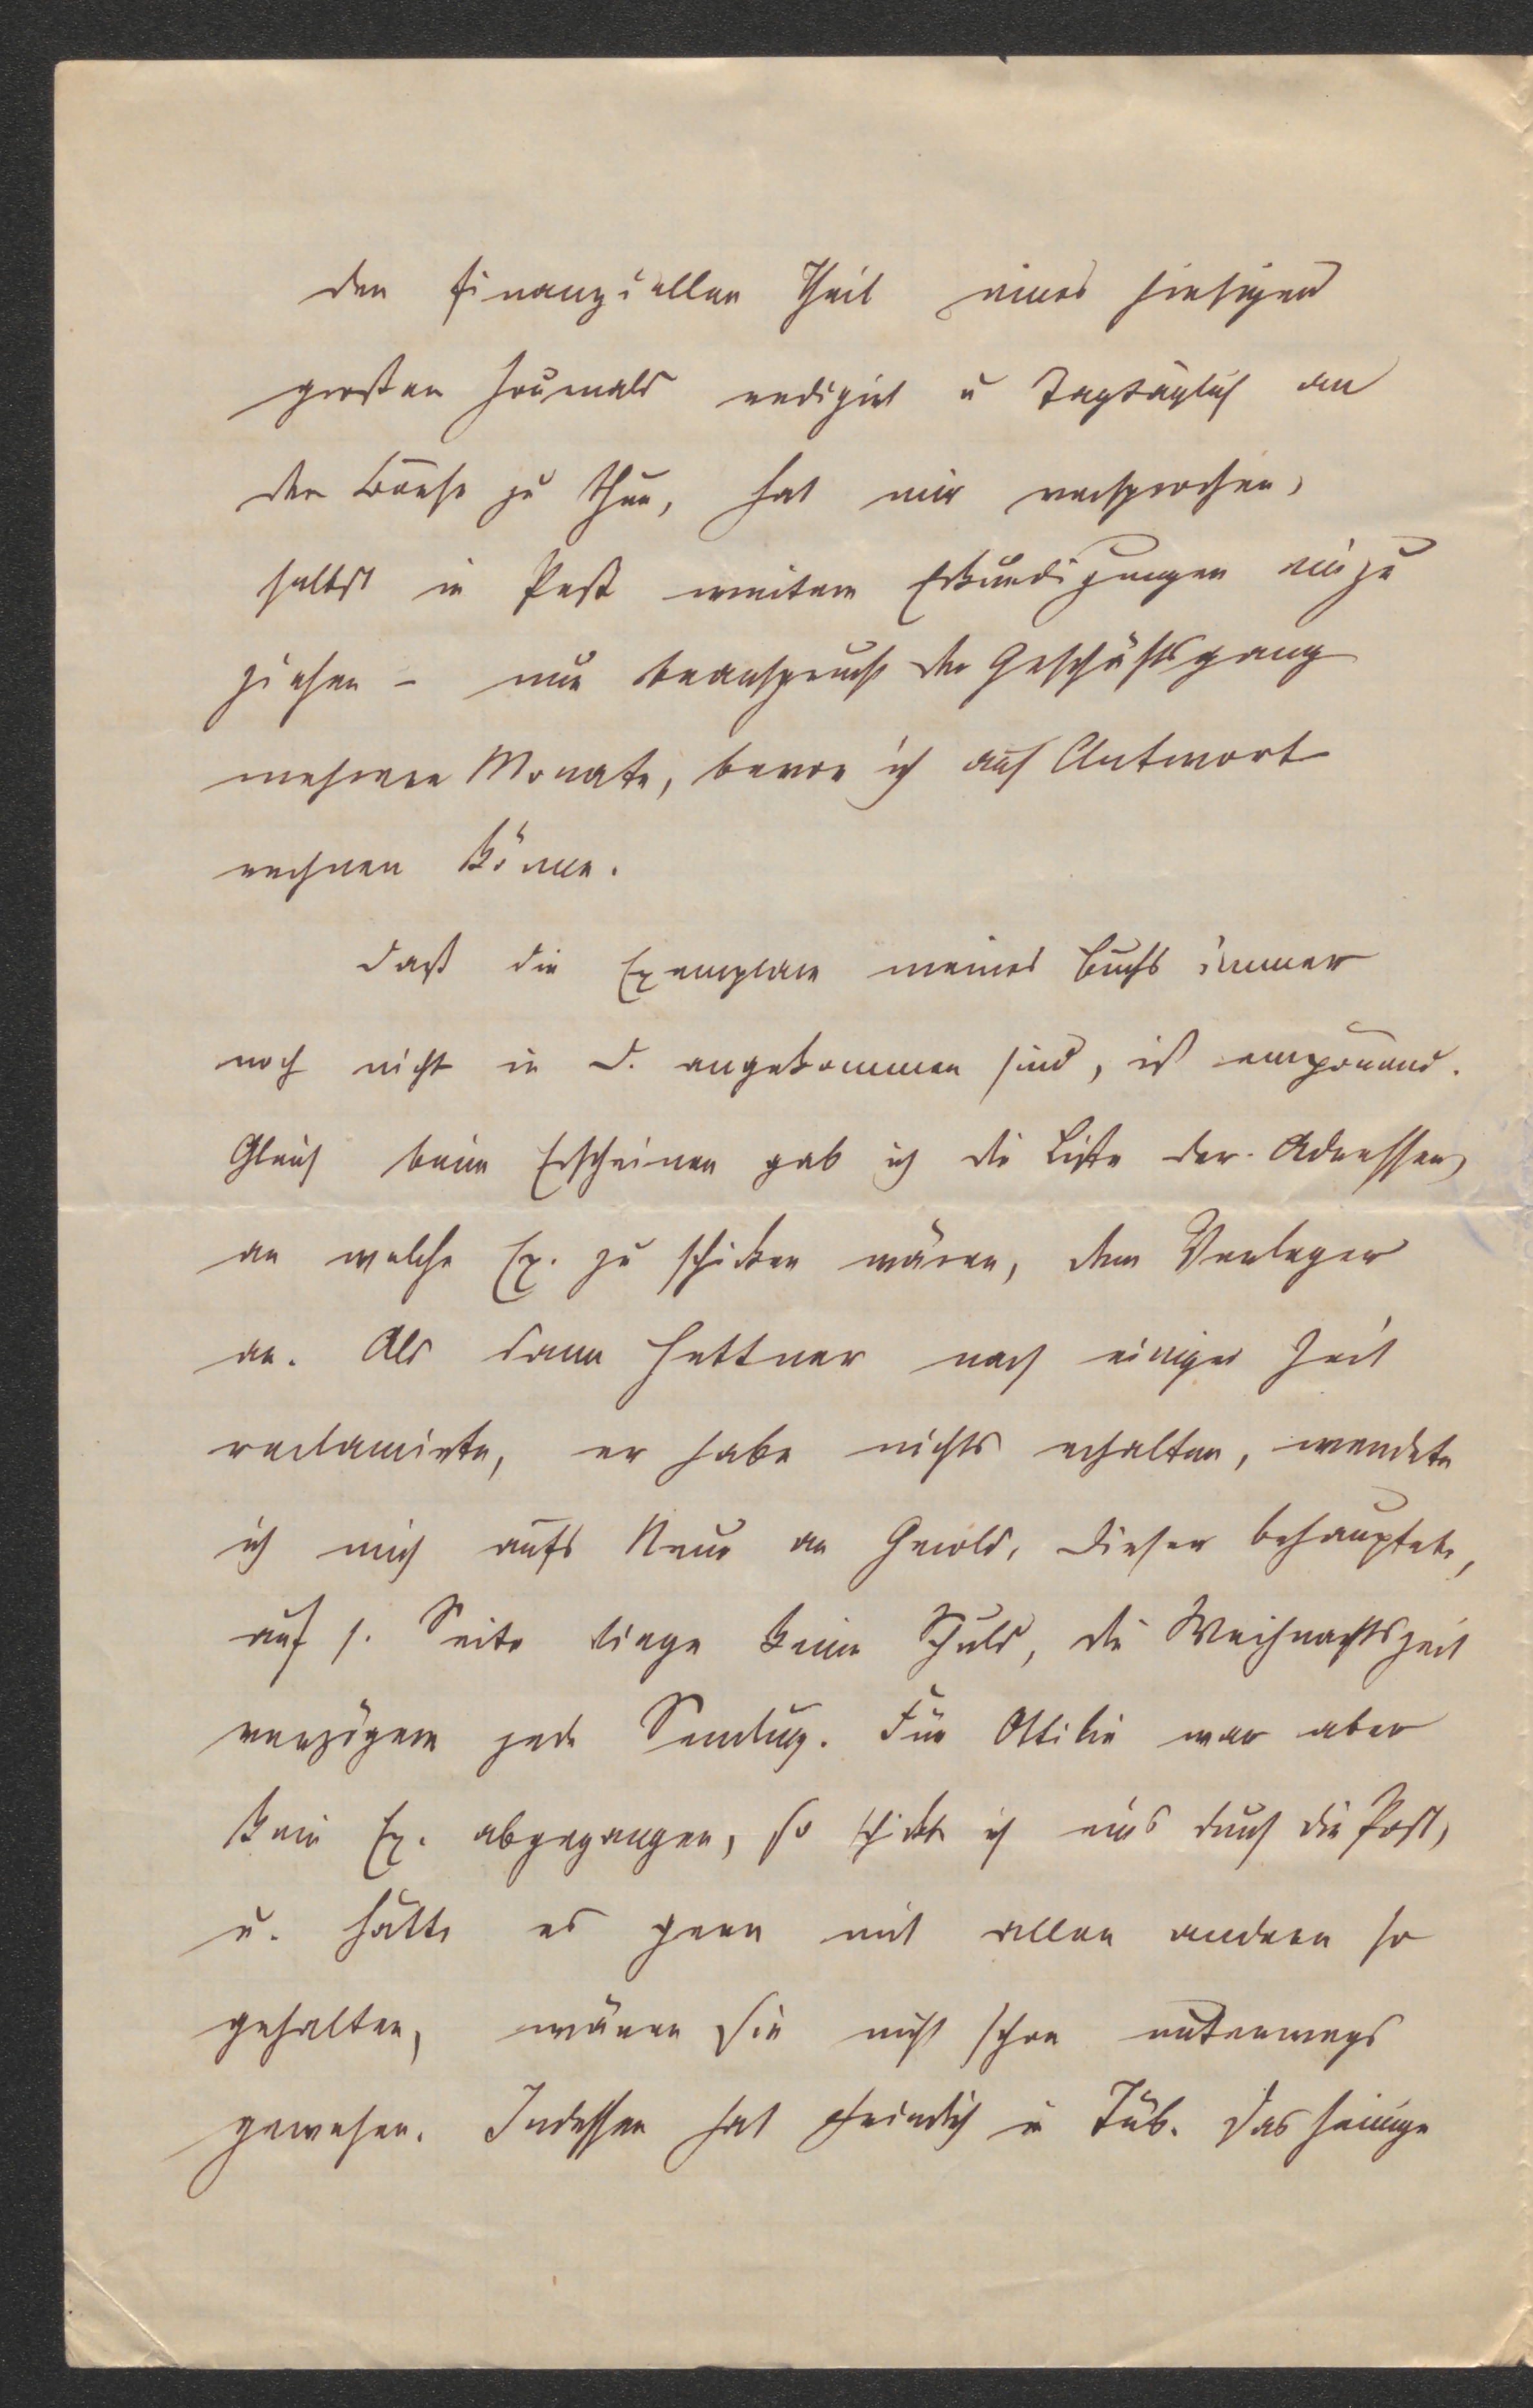 den finanziellen Theil eines hiesigen
großen Journals redigirt u tagtäglich an
der Börse zu thun, hat mir versprochen,
selbst in Pest weitere Erkundigungen einzu
ziehen – nur beansprucht der Geschäftsgang
mehrere Monate, bevor ich auf Antwort
rechnen könne.
Daß die Exemplare meines Buchs immer
noch nicht in D. angekommen sind, ist empörend.
Gleich beim Erscheinen gab ich die Liste der Adressen
an welche Ex. zu schicken wären, dem Verleger
an. Als dann Hettner nach einiger Zeit
reclamirte, er habe nichts erhalten, wendete
ich mich aufs Neue an Gerold, dieser behauptete,
auf s. Seite liege keine Schuld, die Weihnachtszeit
verzögere jede Sendung. Für Ottilie war aber
kein Ex. abgegangen, so schickte ich eins durch die Post,
u. hätte es gern mit allen andern so
gehalten, wären sie nicht schon unterwegs
gewesen. Indessen hat in Tüb. das seinige